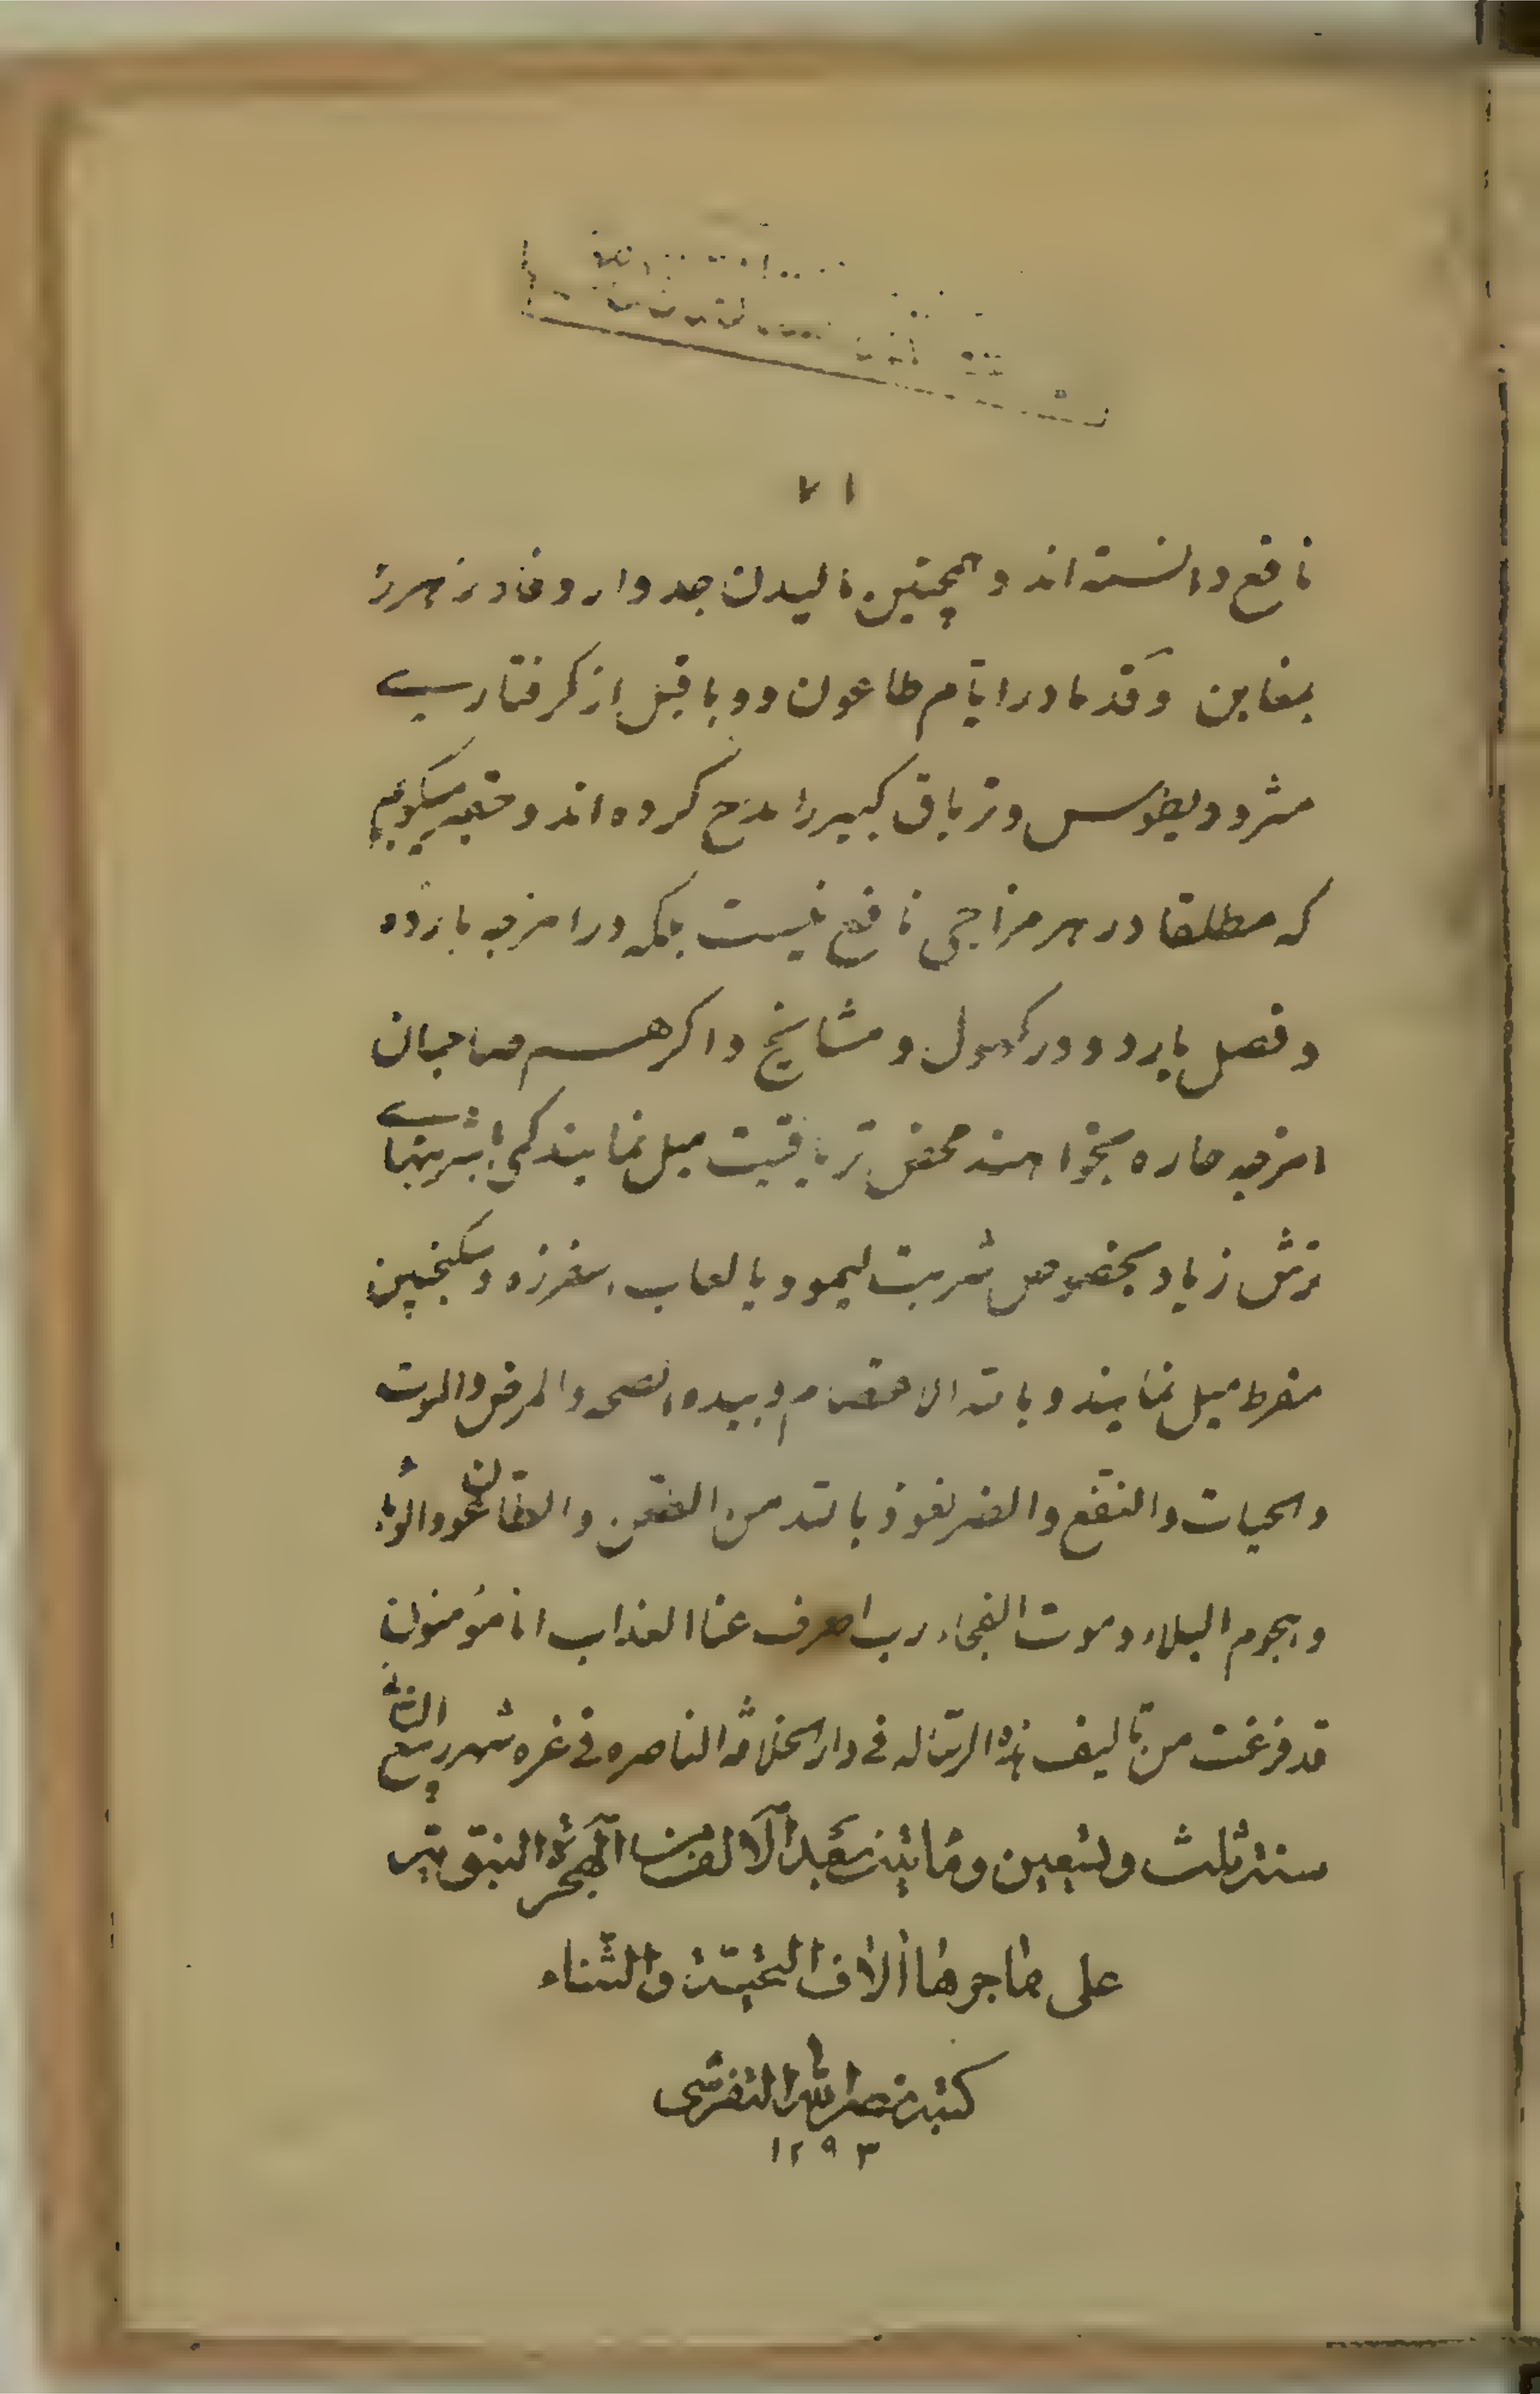 ۷۱
نافع دانسته اند و همچنین مالیدن جدوار و فادزهر را
بمغابن و قدما در ایام طاعون و وبا قبل از کرفتاری
مثرودیطوس و تریاق کبیر را مدح کرده اند و حقیر میکویم
که مطلقا در هر مزاجی نافع نیست بلکه در امزجه بارده
و فصل بارد و در کهول و مشایخ و اکر هم صاحبان
امزجه حاره بخواهند محض تریاقیت میل نمایند کمی با شربتهای
ترش زیاد بخصوص شربت لیمو و با لعاب اسفرزه و سکنجبین
مفرط میل نمایند و بالله الاعتصام و بیده الصحه والمرض والموت
والحیات والنفع والضر نعوذ بالله من الطعن والطاعون والوباء
وهجوم البلاء وموت الفجاء رب اصرف عنا العذاب انا مؤمنون
قد فرغت من تالیف هذه الرساله فی دار الخلافه الناصره فی غره شهر ربیع الثانی
سنة ثلث وتسعین ومأتین بعد الالف من الهجرة النبویة
على هاجرها الاف التحیة والثناء
کتبه نصرالله التفرشی
۱۲۹۳